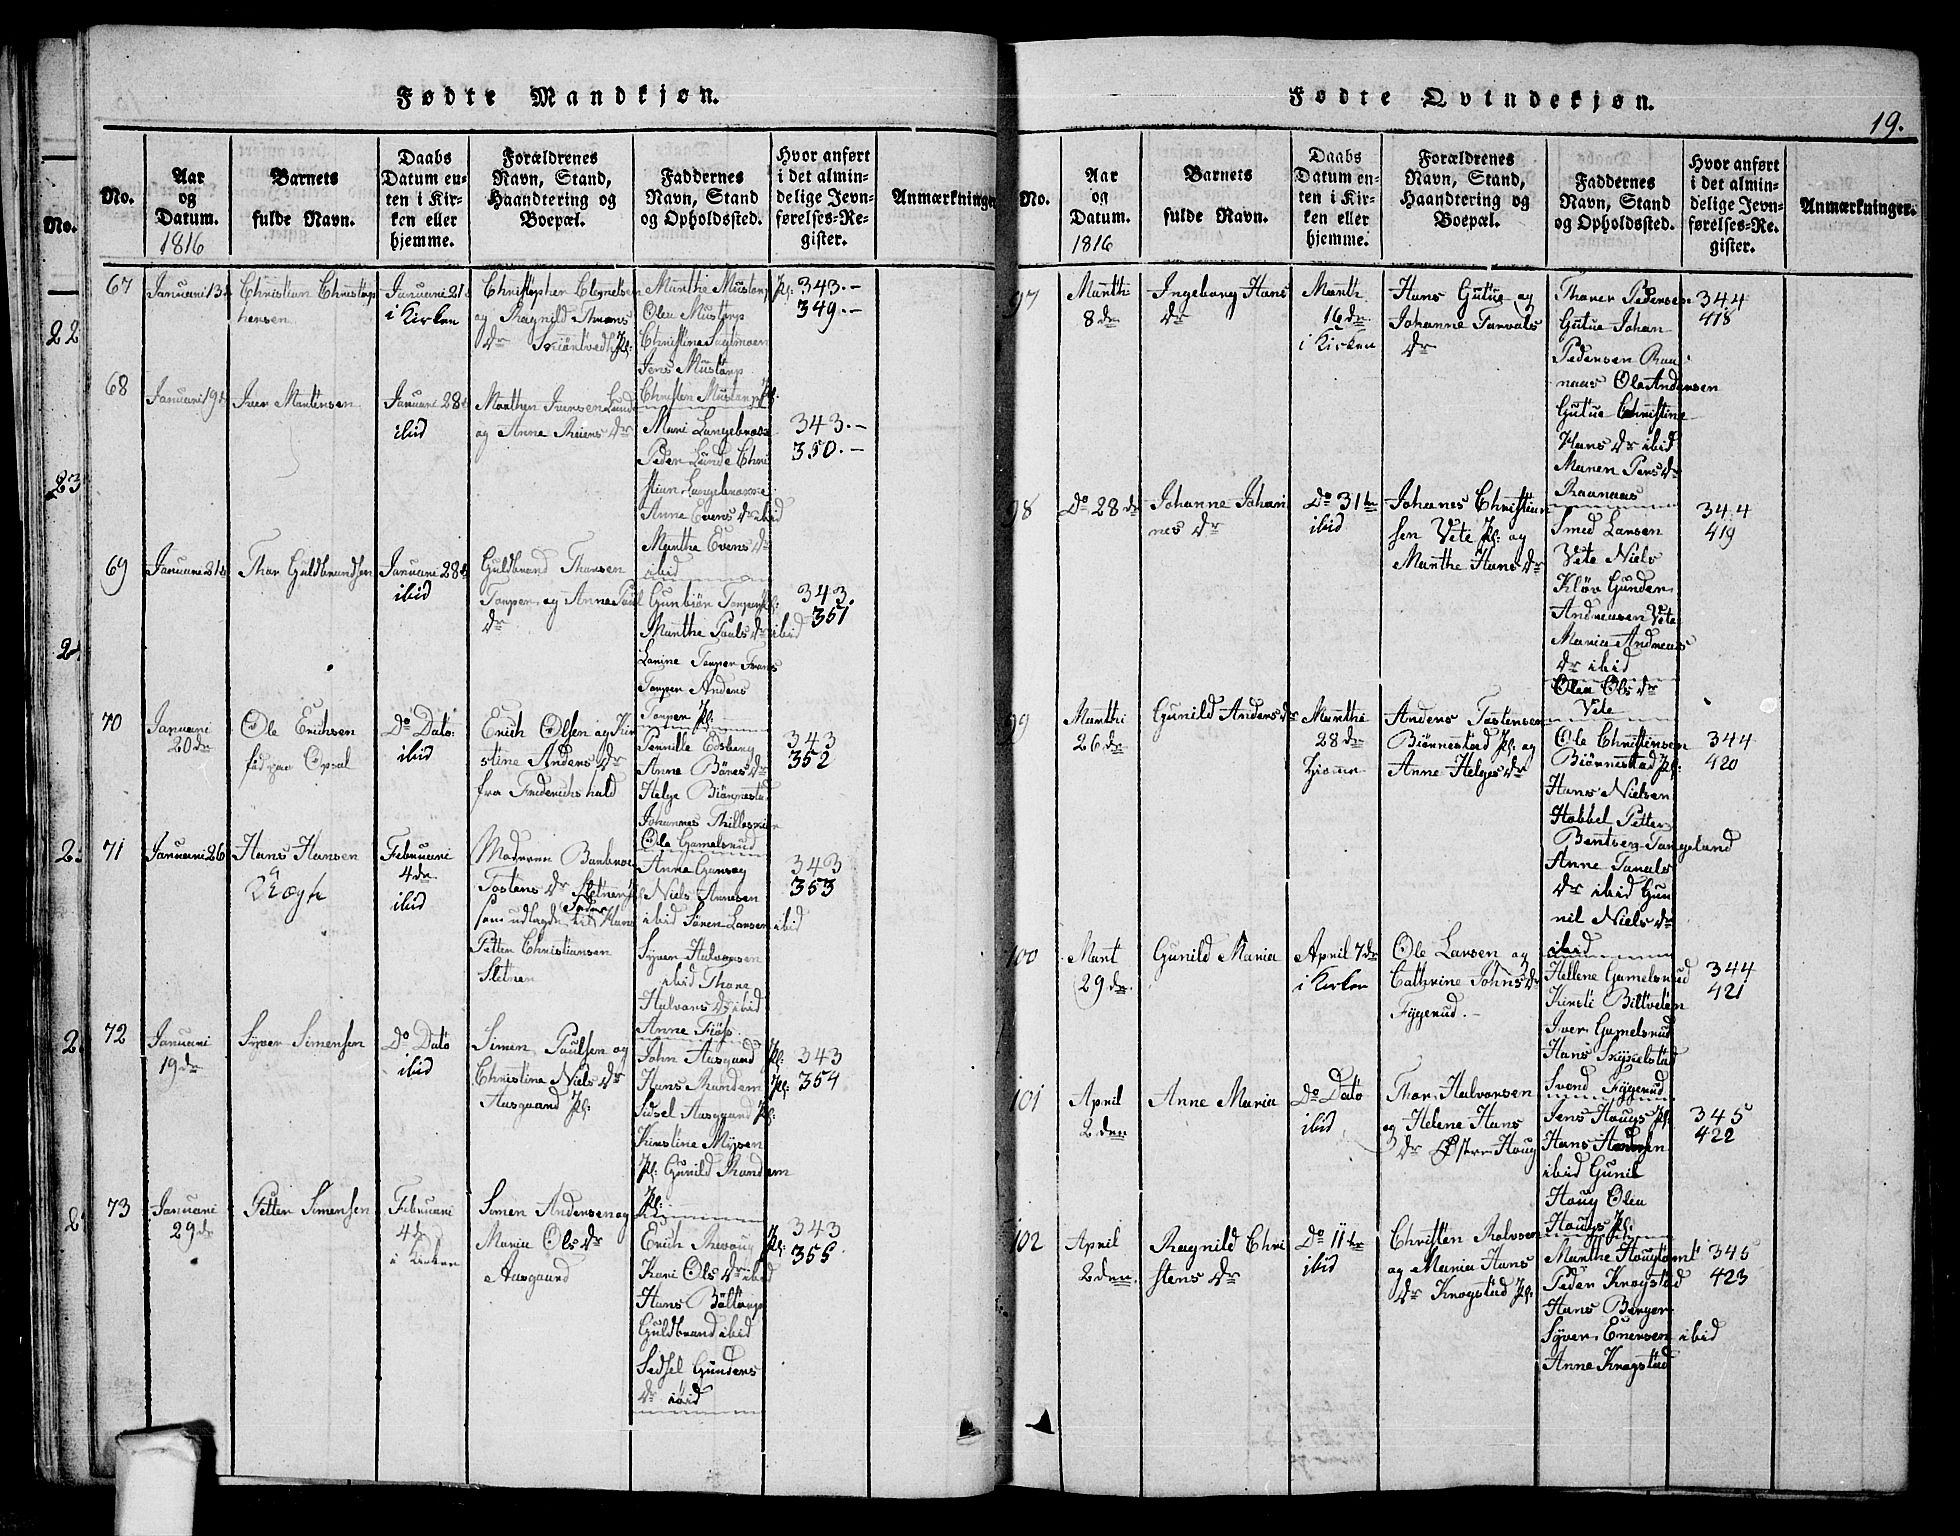 Fødte Mandkjøn.
No.
Aar og Datum. 1816
Barnets fulde Navn.
Daabs Datum enten i Kirken eller hjemme.
Forældrenes Navn, Stand, Haandtering og Boepæl.
Faddernes Navn, Stand og Opholdssted.
Hvor anført i det almindelige Jevnførelses-Register.
Anmærkninger
67
Januari 13
Christian Christophersen
Januari 21
i Kirken
Christopher
og Ragnild
Dr
Marthe Mustorp Pl:
Olea Mustorp
Christine
Jens Mustorp
Christen Mustorp Pl.
343.-
349.-
68
Januari 19
Iver Martensen
Januari 28
ibid
Iversen Lund
og Anne Reiers Dr
Mari Langebraae
Peder Lunde Chri
stian Langebraae
Anne Evens Dr ibid
Marthe Evens Dr
ibid
343.-
350.-
69
Januari 21
Thor Guldbrandsen
Januari 28
ibid
Guldbrand Thorsen
Torper og Anne Paul
Dr
Gunbiør Torper Pl:
Marthe Pauls Dr ibid
Larine Torper
Torper Anders
Torper Pl:
343.
351
70
Januari
20de
Ole Erichsen
Opsal
Do Dato
ibid
Erich Olsen og Kir
stine Anders Dr
fra Friderichshald
Pernille Edsberg
Anne Bønes Dr
Helge Biørnestad
Johannes
Ole Gamelsrud
343
352
71
Januari 26
Hans Hansen
Februari
4de
ibid
Moderen Barbroe
Tostens Dr Sletner
som udlagde til Fader
Petter Christiansen
Sletner
Anne
Niels Arnesen
ibid Søren Larsen ibid
Syver Halvorsen
ibid Thore
Halvors Dr ibid
Anne
343
353
72
Januari
19de
Syver Simensen
Do Dato
ibid
Simen Paulsen og
Christine Niels Dr
Aasgaard Pl:
John Aasgaard Pl:
Hans Randem Pl:
Sidsel Aasgaard Pl:
Kirstine Mysen
Pl: Gunild Randem
Pl:
343
354
73
Januari
29de
Petter Simensen
Februari
4de
i Kirken
Simen Andersen og
Maria Ols Dr
Aasgaard
Erich Pl:
Kari Ols Dr ibid
Hans
Guldbrand ibid
Sedsel Gunders
Dr ibid
343
355
Fødte Qvindekjøn.
19.
No.
Aar og Datum. 1816
Barnets fulde Navn.
Daabs Datum enten i Kirken eller hjemme.
Forældrenes Navn, Stand, Haandtering og Boepæl.
Faddernes Navn, Stand og Opholdssted.
Hvor anført i det almindelige Jevnførelses-Register.
Anmærkninger.
97
Marthi
8de
Ingeborg Hans
Dr
Marth
16de
i Kirken
Hans Gutue og
Johanne Torvals
Dr
Thorer Pedersen
Gutue Johan
Pedersen Raa
naas Ole Andersen
Gutue Christine
Hans Dr ibid
Maren Pers Dr
Raanaas
344
418
98
Do 28de
Johanne Johan
nes Dr
Do 31te
ibid
Johanes Christian
sen Vete Pl: og
Marthe Hans Dr
Smed Larsen
Vete Niels
Kløv Gunder
Andreasen Vete
Maria Andreas
Dr ibid
Olea Ols Dr
Vete
344
419
99
Marthi
26de
Gunild Anders Dr
Marthi
28de
Hiemme
Anders Tostensen
Biørnestad Pl: og
Anne Helges Dr
Ole Christensen
Biørnestad Pl:
Hans Nielsen
Hobbel Petter
Bentsen Tangeland
Anne
Dr ibid Gun
nil Niels Dr
ibid
344
420
100
Mart
29de
Gunild Maria
April 7de
i Kirken
Ole Larsen og
Cathrine Johns Dr
Fygerud
Hellene Gamelsrud
Kirsti
Iver Gamelsrud
Hans
Svend Fygerud
344
421
101
April
2den
Anne Maria
Do Dato
ibid
Thor Halvorsen
og Helene Hans
Dr Østre Houg
Jens Hougs Pl:
Hans
ibid Gunil
Houg Olea
Hougs Pl.
345
422
102
April
2den
Ragnild Chri
stens Dr
Do 11te
ibid
Christen Rolvsen
og Maria Hans
Dr Krogstad Pl:
Marthe
Peder Krogstad
Hans Berger
Syver Enersen ibid
Anne Krogstad
345
423